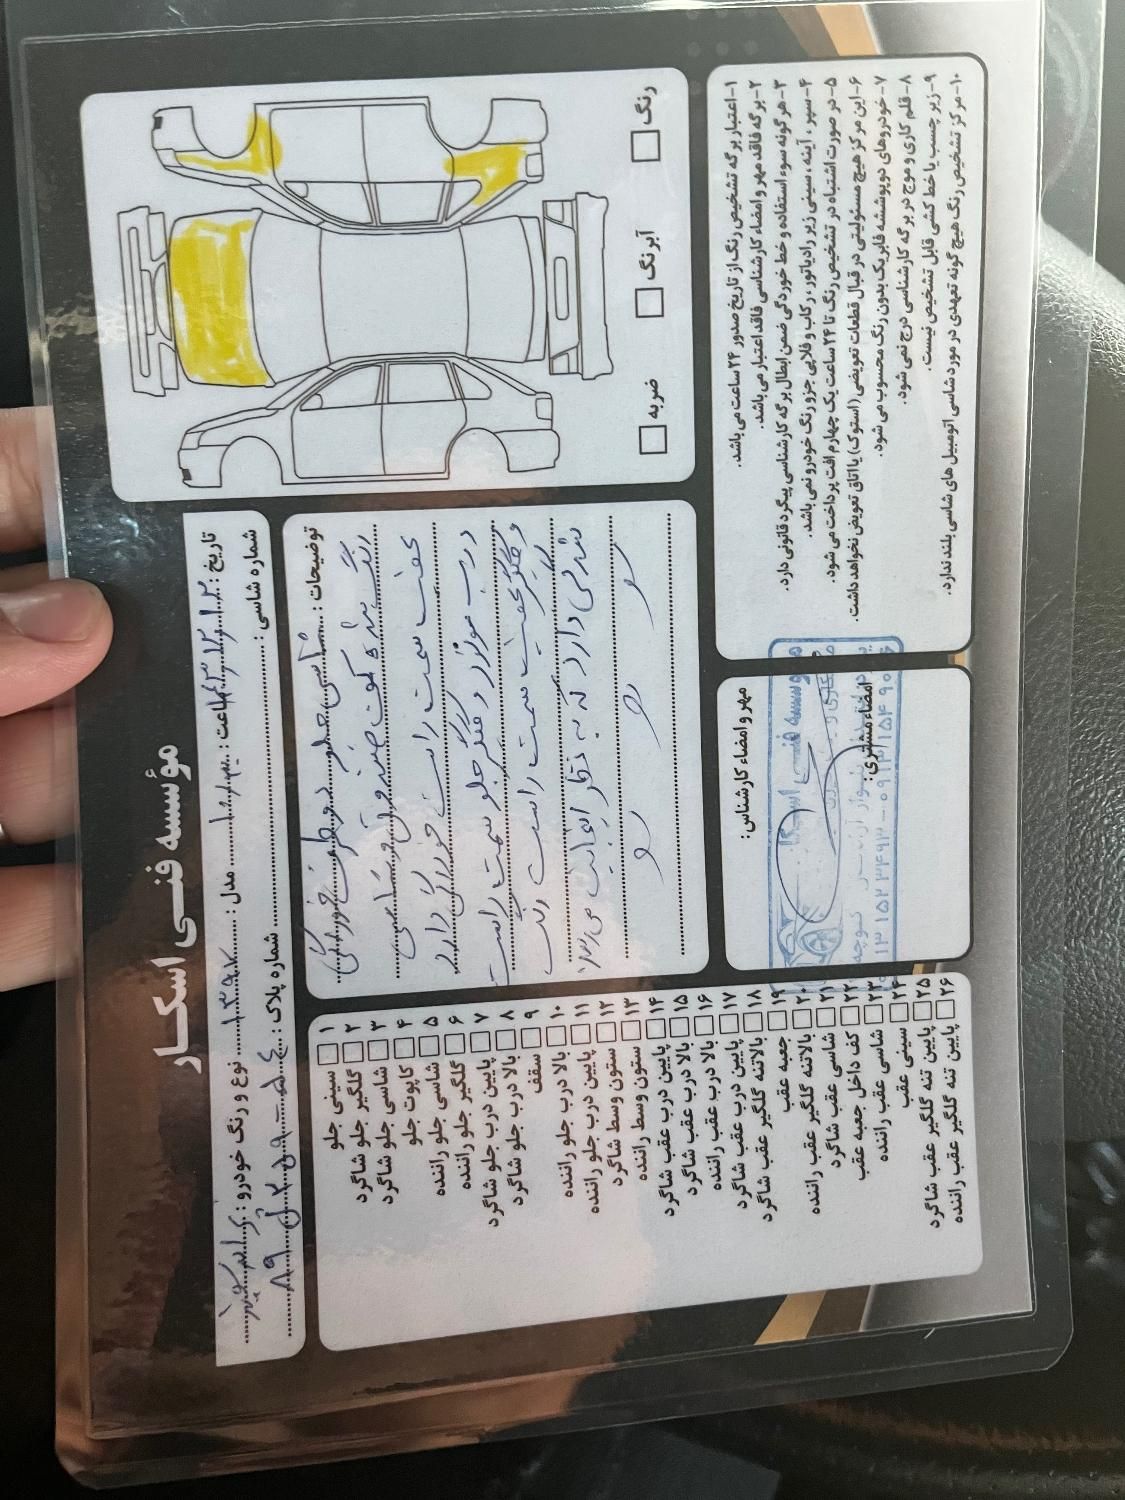 مؤسسه فنـی اسکـار
تاریخ : ساعت : مدل : ۱۳۹۷ نوع و رنگ خودرو :
شماره شاسی : شماره پلاک :
رنگ
آبرنگ
ضربه
توضیحات : شاسی جلو دو طرف خوردگی
رنگ شده کف صندوق و شاسی
عقب سمت راست خوردگی دارد
درب موتور و گلگیر جلو سمت راست
و گلگیر عقب سمت راست رنگ
شدگی دارد که به نظر
۱ سینی جلو
۲ گلگیر جلو شاگرد
۳ شاسی جلو شاگرد
۴ کاپوت جلو
۵ شاسی جلو راننده
۶ گلگیر جلو راننده
۷ پایین درب جلو شاگرد
۸ بالا درب جلو شاگرد
۹ سقف
۱۰ بالا درب جلو راننده
۱۱ پایین درب جلو راننده
۱۲ ستون وسط شاگرد
۱۳ ستون وسط راننده
۱۴ پایین درب عقب شاگرد
۱۵ بالا درب عقب شاگرد
۱۶ بالا درب عقب راننده
۱۷ پایین درب عقب شاگرد
۱۸ بالاتنه گلگیر عقب شاگرد
۱۹ جعبه عقب
۲۰ بالاتنه گلگیر عقب راننده
۲۱ شاسی عقب شاگرد
۲۲ کف داخل جعبه عقب
۲۳ شاسی عقب راننده
۲۴ سینی عقب
۲۵ پایین تنه گلگیر عقب شاگرد
۲۶ پایین تنه گلگیر عقب راننده
۱- اعتبار برگه تشخیص رنگ از تاریخ صدور ۲۴ ساعت می باشد.
۲- برگه فاقد مهر و امضاء کارشناسی فاقد اعتبار می باشد.
۳- هر گونه سوء استفاده و خط خوردگی ضمن ابطال برگه کارشناسی پیگرد قانونی دارد.
۴- سپر ، آینه ، سینی زیر رادیاتور ، رکاب و قلابی جزو رنگ خودرو نمی باشد.
۵- در صورت اشتباه در تشخیص رنگ تا ۲۴ ساعت یک چهارم افت پرداخت می شود.
۶- این مرکز هیچ مسئولیتی در قبال قطعات تعویضی (استوک) یا اتاق تعویض نخواهد داشت.
۷- خودروهای دوپوششه فابریک بدون رنگ محسوب می شود.
۸- قلم کاری و موج در برگه کارشناسی درج نمی شود.
۹- زیر چسب یا خط کشی قابل تشخیص نیست.
۱۰- مرکز تشخیص رنگ هیچ گونه تعهدی در مورد شاسی اتومبیل های شاسی بلند ندارد.
مهر و امضاء کارشناس :
امضاء مشتری :
مؤسسه فنـی اسکار